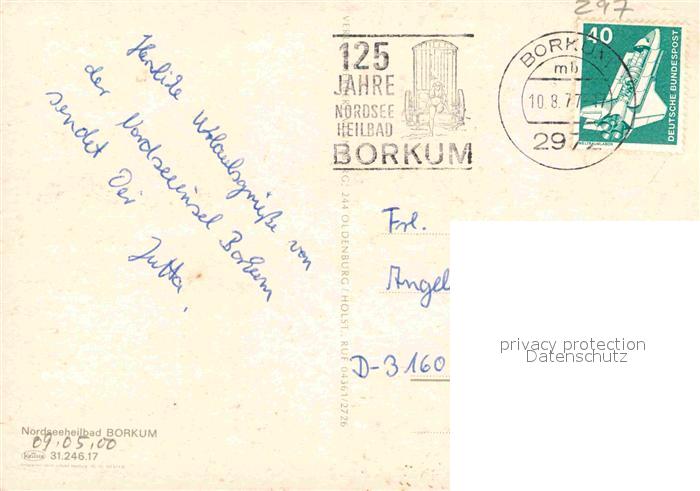 297
125
JAHRE
NORDSEE
HEILBAD
BORKUM
BORKUM
mb
10.8.77
2972
40
DEUTSCHE BUNDESPOST
WELTRAUMLABOR
Herzliche Urlaubsgrüße von
der Nordseeinsel Borkum
sendet Dir
Jutta.
244 OLDENBURG/HOLST., RUF 04361/2726
Frl.
Angel
D-3160
privacy protection
Datenschutz
Nordseeheilbad BORKUM
09.05.00
Krüger 31.246.17